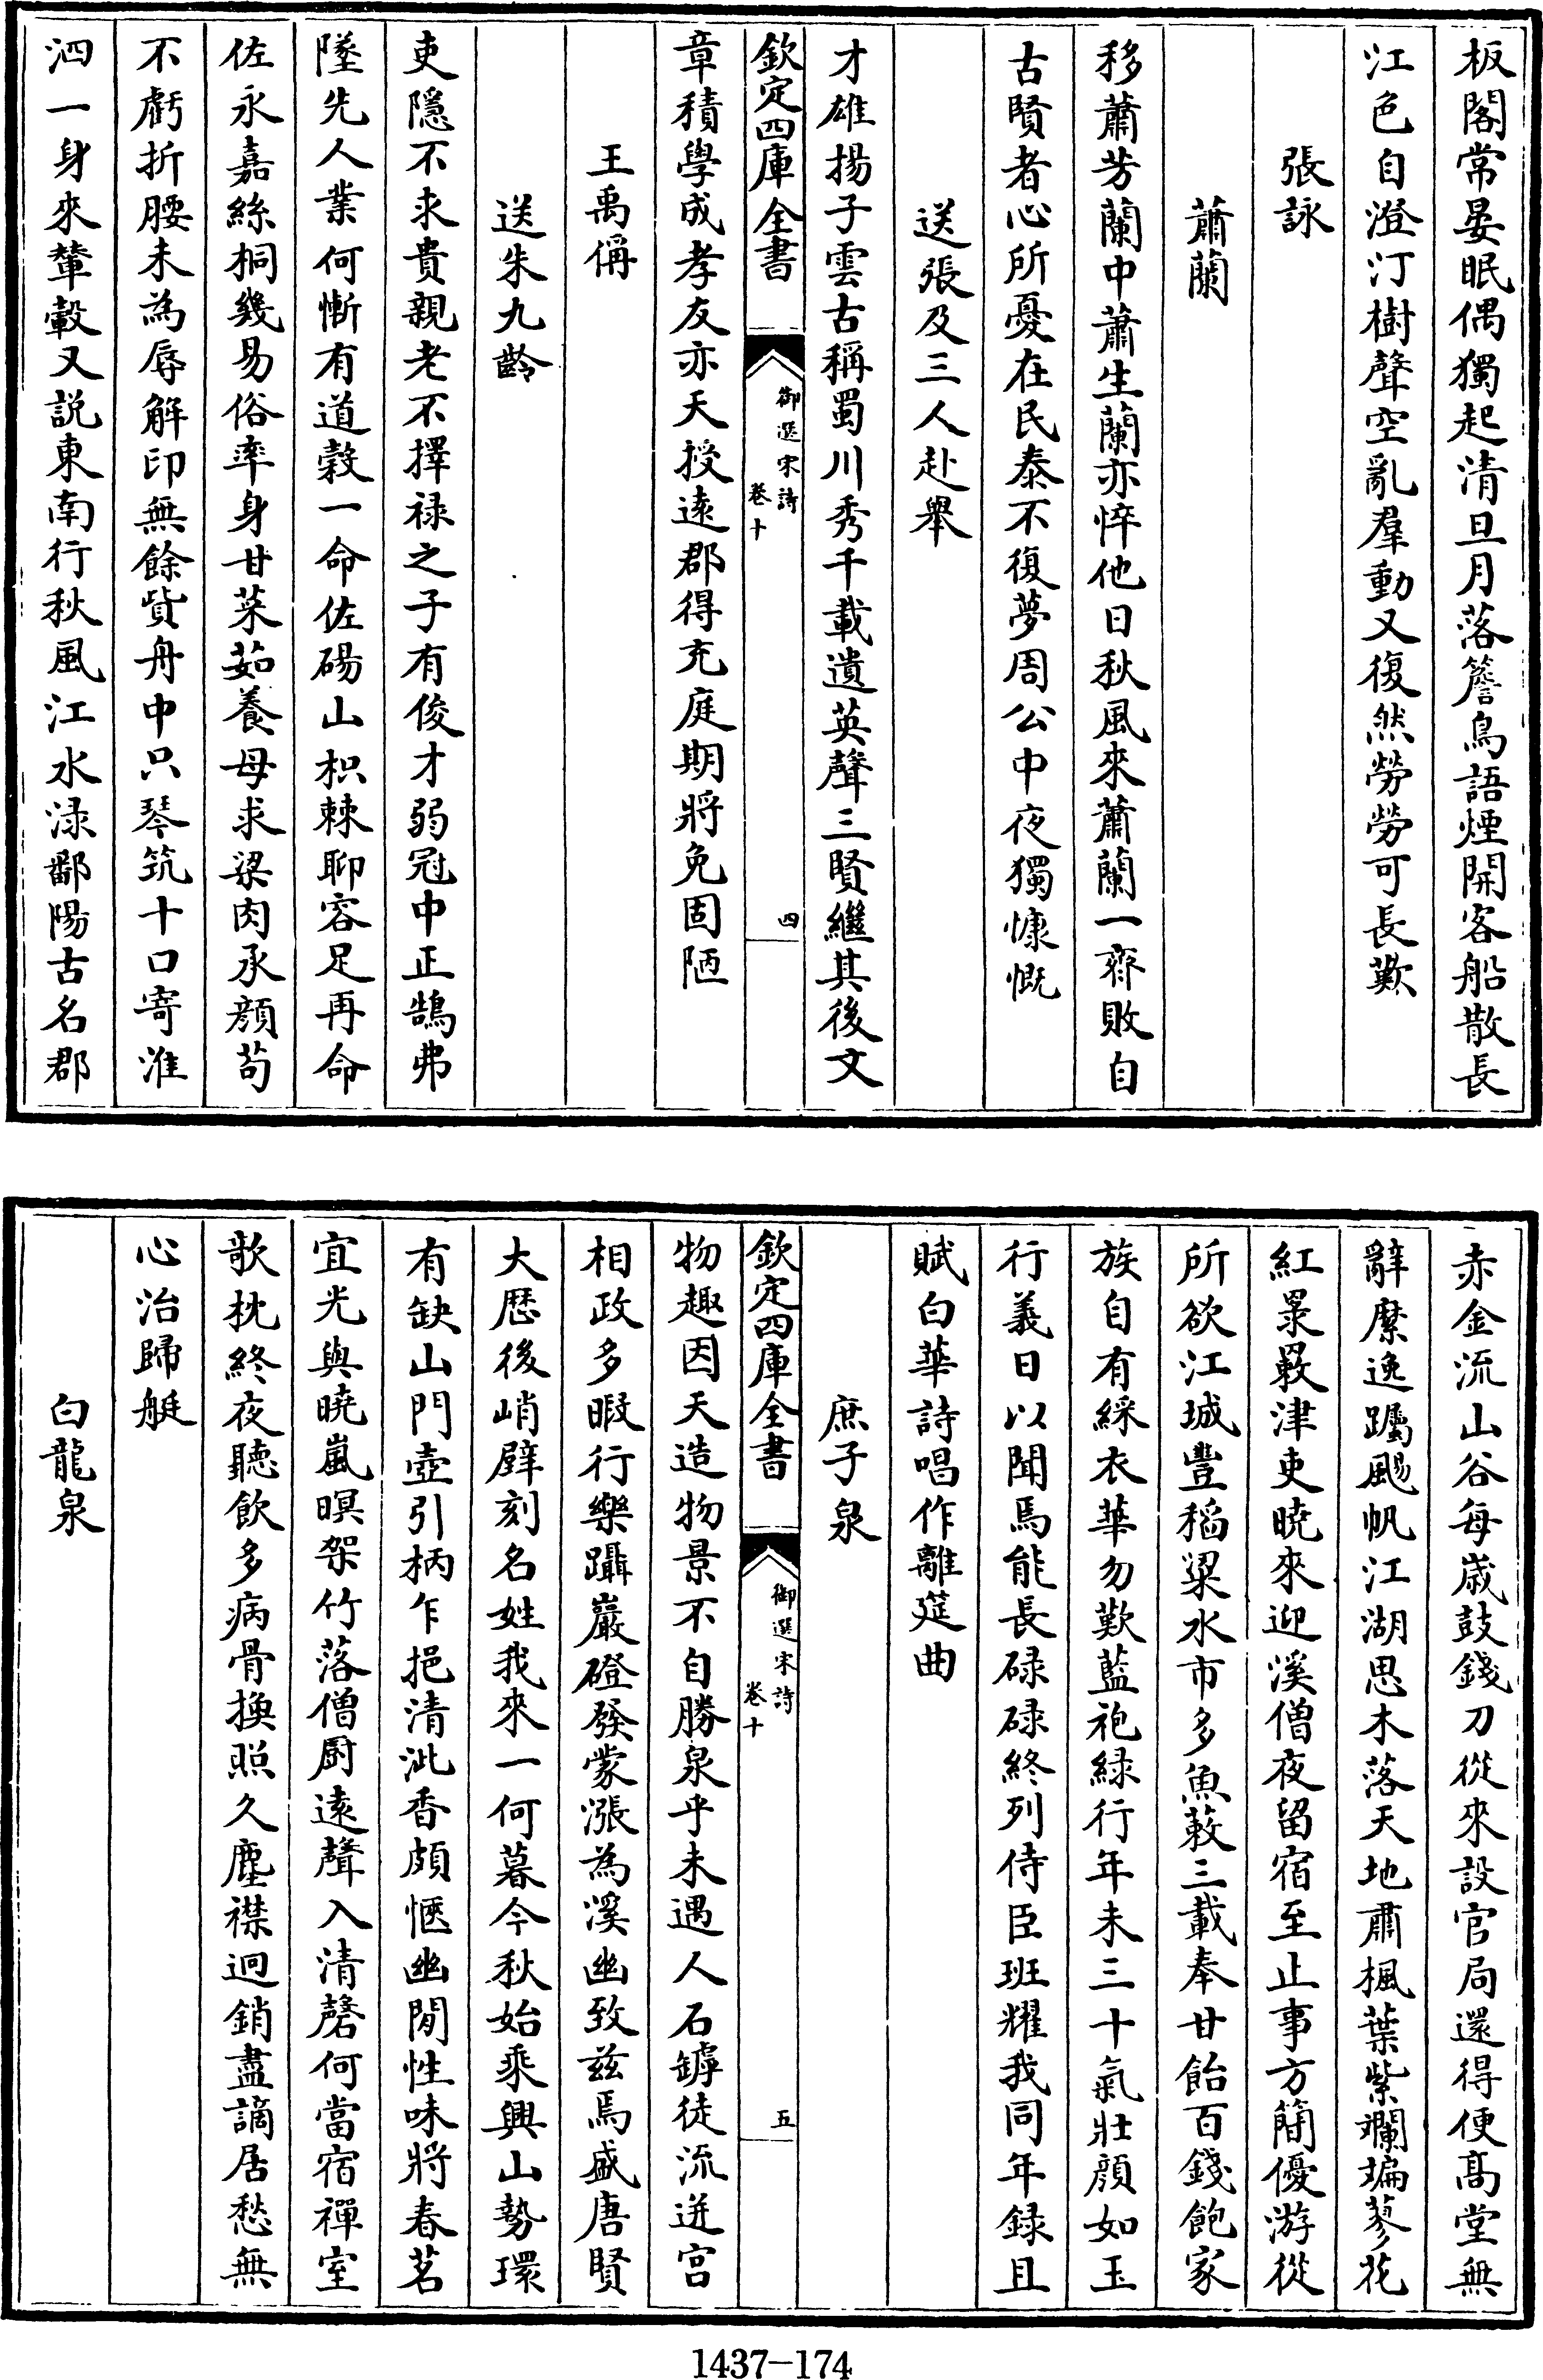 板閣常晏眠偶獨起清旦月落簷鳥語煙開客船散長
江色自澄汀樹聲空亂羣動又復然勞勞可長歎
張詠
蕭蘭
移蕭芳蘭中蕭生蘭亦悴他日秋風來蕭蘭一齊敗自
古賢者心所憂在民泰不復夢周公中夜獨慷慨
送張及三人赴舉
才雄揚子雲古稱蜀川秀千載遺英聲三賢繼其後文
欽定四庫全書
御選宋詩
卷十
四
章積學成孝友亦天授遠郡得充庭期將免固陋
王禹偁
送朱九齡
吏隱不求貴親老不擇祿之子有俊才弱冠中正鵠弗
墜先人業何慚有道穀一命佐碭山枳棘聊容足再命
佐永嘉絲桐幾易俗率身甘菜茹養母求粱肉承顔苟
不虧折腰未為辱解印無餘貲舟中只琴筑十口寄淮
泗一身來輦轂又説東南行秋風江水淥鄱陽古名郡
赤金流山谷每歲鼓錢刀從來設官局還得便髙堂無
辭縻逸躅颺帆江湖思木落天地肅楓葉紫斕斒蓼花
紅㬌䍡津吏曉來迎溪僧夜留宿至止事方簡優游從
所欲江城豐稻粱水市多魚蔌三載奉甘飴百錢飽家
族自有綵衣華勿歎藍袍緑行年未三十氣壯顔如玉
行義日以聞焉能長碌碌終列侍臣班耀我同年録且
賦白華詩唱作離筵曲
庶子泉
欽定四庫全書
御選宋詩
卷十
五
物趣因天造物景不自勝泉乎未遇人石罅徒流迸宫
相政多暇行樂躡巖磴發蒙漲為溪幽致兹焉盛唐賢
大厯後峭壁刻名姓我來一何暮今秋始乘興山勢環
有缺山門壺引柄乍挹清泚香頗愜幽閒性味將春茗
宜光與曉嵐暝架竹落僧厨遠聲入清磬何當宿禪室
欹枕終夜聽飲多病骨換照久塵襟迥銷盡謫居愁無
心治歸艇
白龍泉
1437-174